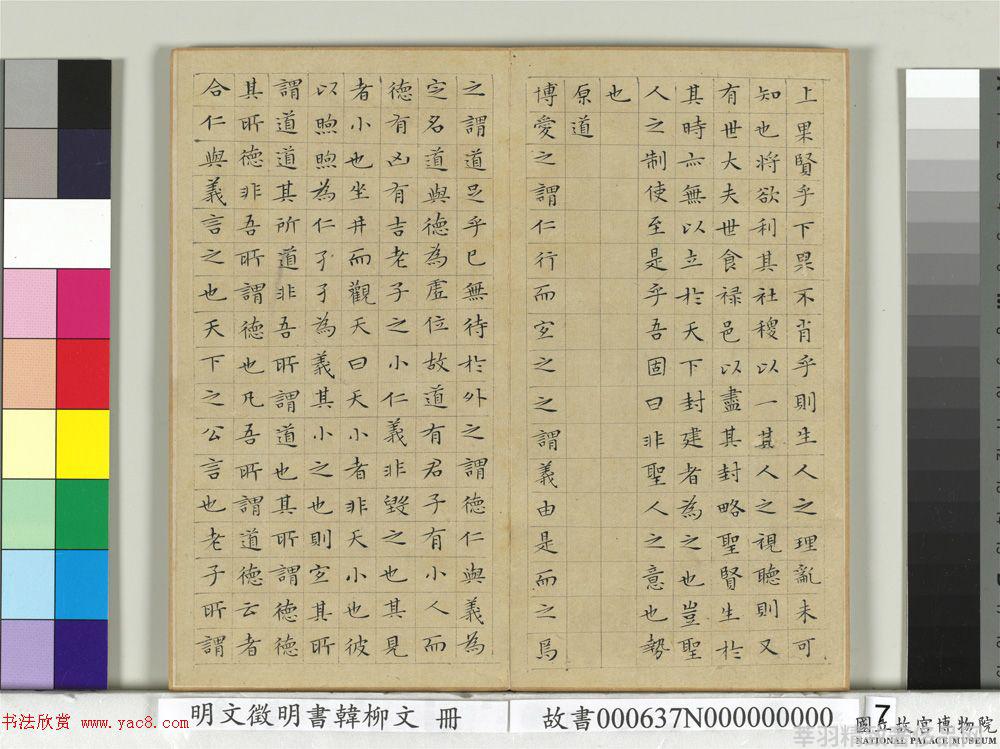 上果賢乎下果不肖乎則生人之理亂未可
知也將欲利其社稷以一其人之視聽則又
有世大夫世食祿邑以盡其封略聖賢生於
其時亦無以立於天下封建者為之也豈聖
人之制使至是乎吾固曰非聖人之意也勢
也
原道
博愛之謂仁行而宜之之謂義由是而之焉
之謂道足乎已無待於外之謂德仁與義為
定名道與德為虛位故道有君子有小人而
德有凶有吉老子之小仁義非毀之也其見
者小也坐井而觀天曰天小者非天小也彼
以煦煦為仁孑孑為義其小之也則宜其所
謂道道其所道非吾所謂道也其所謂德德
其所德非吾所謂德也凡吾所謂道德云者
合仁與義言之也天下之公言也老子所謂
明文徵明書韓柳文 冊
故書000637N000000000
7
國立故宮博物院
NATIONAL PALACE MUSEUM
书法欣赏 www.yac8.com